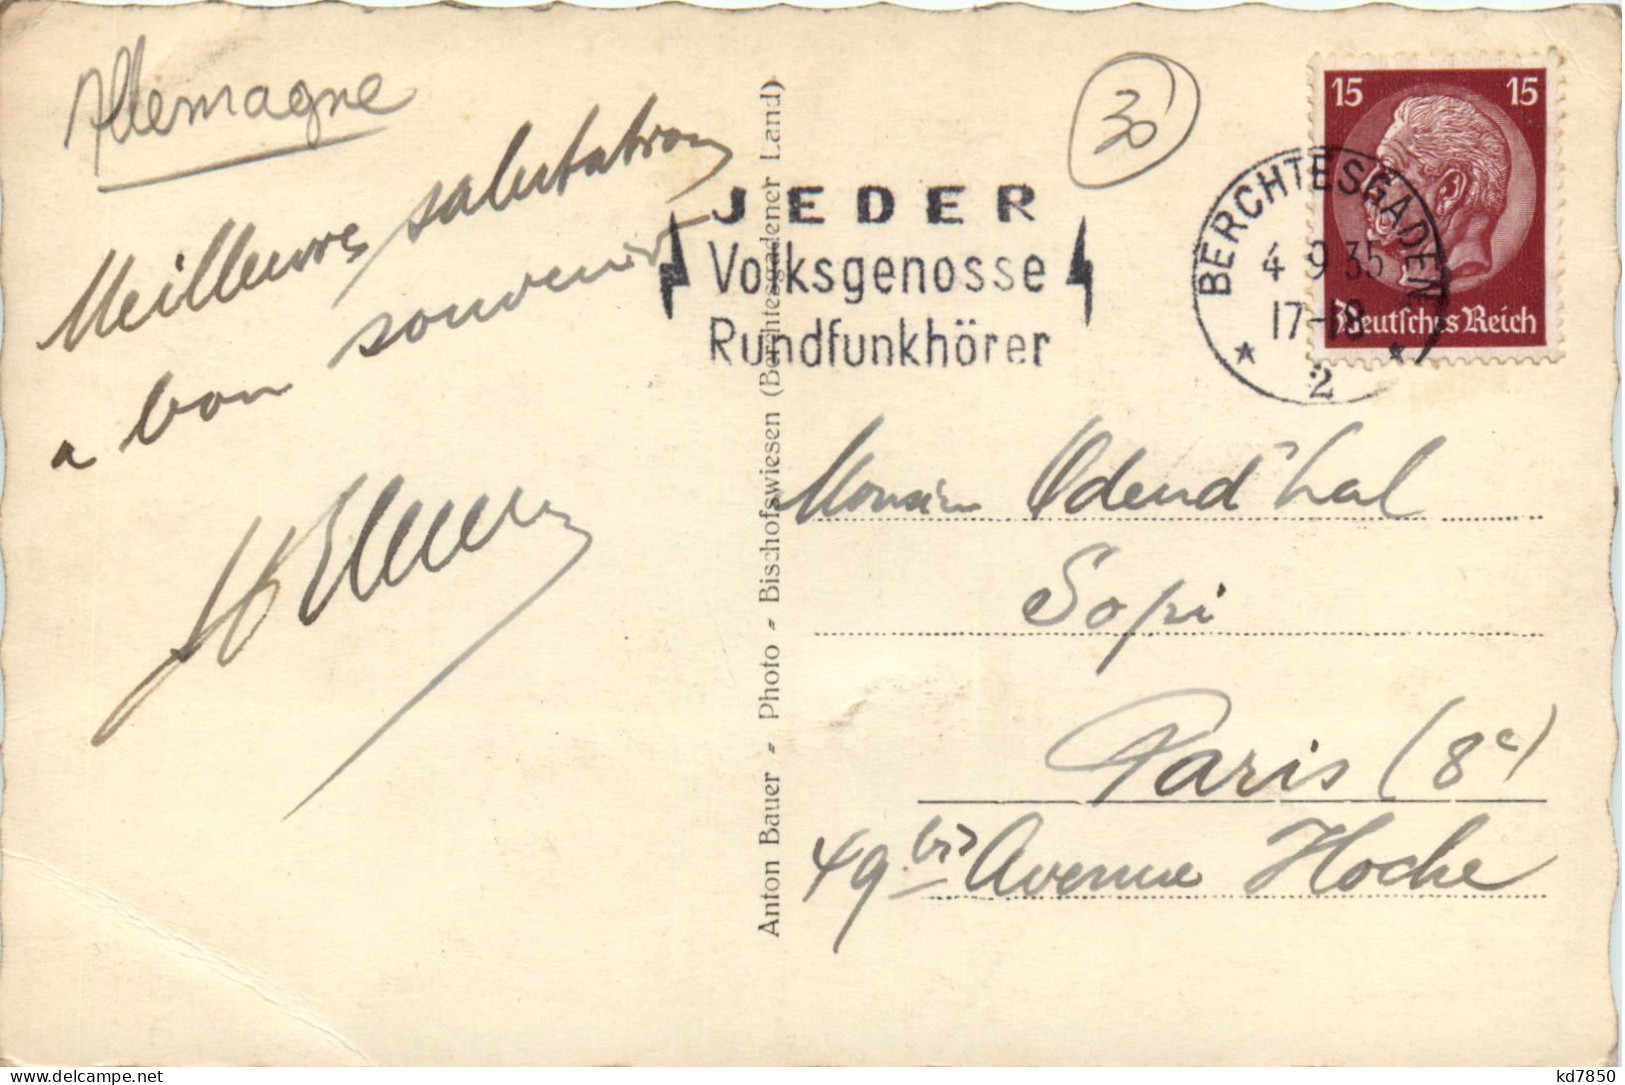 Allemagne
Meilleures salutations
a bon souvenir
30
JEDER
Volksgenosse
Rundfunkhörer
BERCHTESGADEN
4 9 35
17-18
2
15 15
Deutsches Reich
Anton Bauer - Photo - Bischofswiesen (Berchtesgadener Land)
Monsieur Odend'hal
Sopi
Paris (8e)
49 bis Avenue Hoche
kd7850